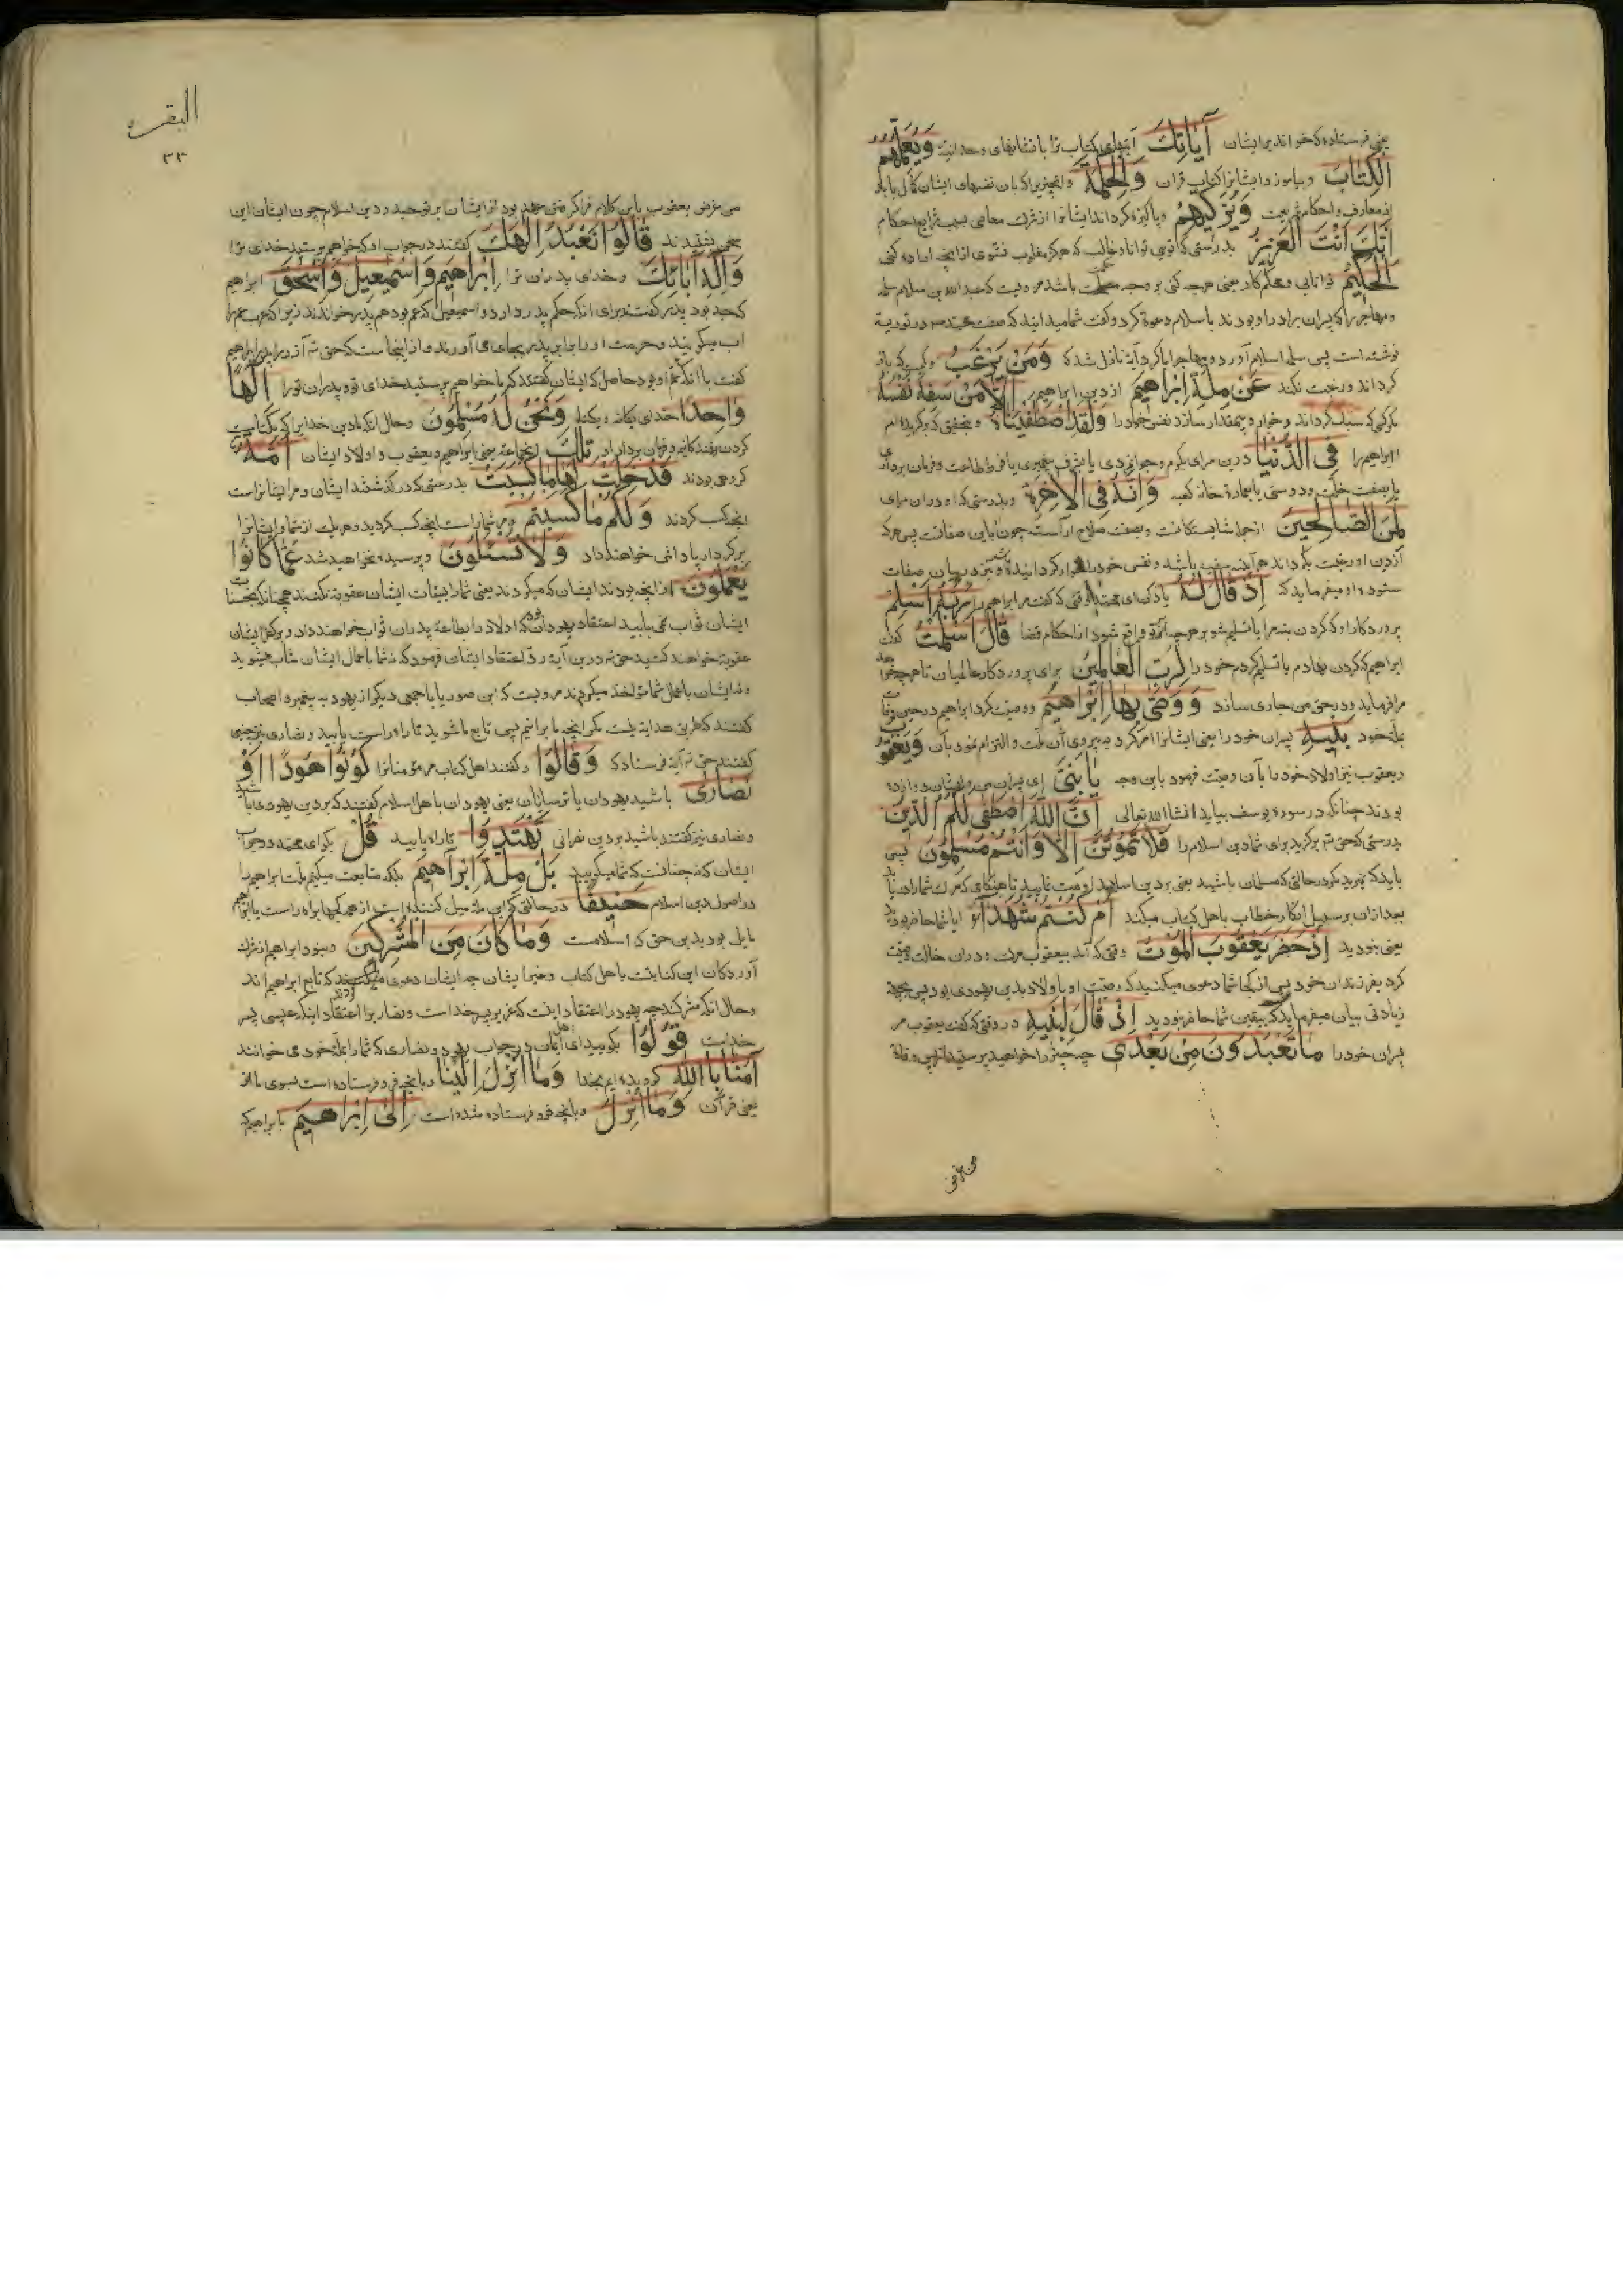 یعنی فرستاده که خواند بر ایشان آیَاتِکَ آیتهای کتاب ترا یا نشانهای وحدانیت وَیُعَلِّمُهُمُ
الْکِتَابَ و بیاموزد ایشانرا کتاب قرآن وَالْحِکْمَةَ وانچیزیرا که بان نفسهای ایشان کمال یابد
از معارف و احکام شریعت وَیُزَکِّیهِمْ و پاکیزه گرداند ایشانرا از شرک معاصی بسبب شرایع احکام
اِنَّکَ اَنْتَ الْعَزِیزُ بدرستی که تویی توانا و غالب که هرگز مغلوب نشوی از انچه اراده کنی
الْحَکِیمُ توانایی و محکم کار یعنی هرچه کنی بر وجه حکمت باشد مرویست که عبدالله بن سلام سلمه
ومهاجر را که پسران برادر او بودند باسلام دعوة کرد و گفت شما میدانید که صفت محمد در توریة
نوشته است پس سلمه اسلام آورد و مهاجر ابا کرد آیة نازل شد که وَمَنْ یَرْغَبُ وکیست که باز
گرداند و رغبت نکند عَنْ مِلَّةِ اِبْرَاهِیمَ از دین ابراهیم اِلَّا مَنْ سَفِهَ نَفْسَهُ
مگر کسی که سبک گرداند و خوار و بیمقدار سازد نفس خود را وَلَقَدِ اصْطَفَیْنَاهُ و بتحقیق که برگزیده ایم
ابراهیم را فِی الدُّنْیَا درین سرای بکرم و جوانمردی یا بشرف پیغمبری یا فرط طاعت و فرمان برداری
یا بصفت خلت و دوستی یا بعمارة خانه کعبه وَاِنَّهُ فِی الْآخِرَةِ و بدرستی که او در ان سرای
لَمِنَ الصَّالِحِینَ از جمله شایستکانست و بصفت صلاح آراسته چون باین صفاتست پس هرکه
از دین او رغبت بگرداند هرآینه سفیه باشد و نفس خود را خوار گردانیده
ستوده او میفرماید که اِذْ قَالَ لَهُ یاد کن ای محمد وقتی که گفت مر ابراهیم را رَبُّهُ اَسْلِمْ
پروردکار او که گردن بنه مرا یا تسلیم شو بر هرچه بتو واقع شود از احکام قضا قَالَ اَسْلَمْتُ گفت
ابراهیم که گردن نهادم یا تسلیم کردم خود را لِرَبِّ الْعَالَمِینَ برای پروردکار عالمیان تا هرچه خواهد
مرا فرماید و در حق من جاری سازد وَوَصّٰی بِهَا اِبْرَاهِیمُ و وصیت کرد ابراهیم در حین وفات
بملة خود بَنِیهِ پسران خود را یعنی ایشانرا امر کرد به پیروی آن ملت و التزام نمود بآن وَیَعْقُوبُ
و یعقوب نیز اولاد خود را بآن وصیت فرمود باین وجه یَا بَنِیَّ ای پسران من و ایشان دوازده
بودند چنانکه در سوره یوسف بیاید انشا الله تعالی اِنَّ اللّٰهَ اصْطَفٰی لَکُمُ الدِّینَ
بدرستی که حق ته برگزید برای شما دین اسلام را فَلَا تَمُوتُنَّ اِلَّا وَاَنْتُمْ مُسْلِمُونَ پس
باید که نمیرید مگر در حالتی که مسلمان باشید یعنی بر دین اسلام
بعد ازان بر سبیل انکار خطاب باهل کتاب میکند اَمْ کُنْتُمْ شُهَدَاءَ ایا شما حاضر بودید
یعنی نبودید اِذْ حَضَرَ یَعْقُوبَ الْمَوْتُ وقتی که آمد بیعقوب مرگ و در ان حالت وصیت
کرد بفرزندان خود پس از کجا شما دعوی میکنید که وصیت او باولاد بدین یهودی بود پس بجهة
زیادتی بیان میفرماید که بیقین شما حاضر نبودید اِذْ قَالَ لِبَنِیهِ در وقتی که گفت یعقوب مر
پسران خود را مَا تَعْبُدُونَ مِنْ بَعْدِی چه چیز را خواهید پرستید از پس وفاة
من غرض
البقره
۳۳
من غرض یعقوب باین کلام فراگرفتن عهد بود از ایشان بر توحید و دین اسلام چون ایشان این
سخن بشنیدند قَالُوا نَعْبُدُ اِلٰهَکَ گفتند در جواب او که خواهیم پرستید خدای ترا
وَاِلٰهَ آبَائِکَ و خدای پدران ترا اِبْرَاهِیمَ وَاِسْمٰعِیلَ وَاِسْحٰقَ ابراهیم
که جد بود پدر گفتند برای انکه حکم پدر دارد و اسمعیل که عم بود هم پدر خواندند زیرا که عرب عم را
اب میگویند و حرمت او را برابر پدر بجای می آورند و از اینجاست که حق ته آزر را پدر ابراهیم
گفت با انکه عم او بود حاصل که ایشان گفتند که ما خواهیم پرستید خدای تو و پدران تو را اِلٰهًا
وَاحِدًا خدای یگانه و یکتا وَنَحْنُ لَهُ مُسْلِمُونَ وحال انکه ما دین خدایرا که یکتاست
گردن نهندگانیم و فرمان بردار او تِلْکَ انجماعة یعنی ابراهیم و یعقوب و اولاد ایشان اُمَّةٌ
گروهی بودند قَدْ خَلَتْ لَهَا مَا کَسَبَتْ بدرستی که درگذشتند ایشان و مر ایشانراست
انچه کسب کردند وَلَکُمْ مَا کَسَبْتُمْ و مر شما راست انچه کسب کردید و هر یک از شما و ایشانرا
بر کردار پاداش خواهند داد وَلَا تُسْئَلُونَ و پرسیده نخواهید شد عَمَّا کَانُوا
یَعْمَلُونَ از انچه بودند ایشان که میکردند یعنی شما را بسیئات ایشان عقوبة نکنند همچنانکه بحسنات
ایشان ثواب نمی یابید اعتقاد یهود آن بود که اولاد را بطاعة پدران ثواب خواهند داد و بر کفر ایشان
عقوبة خواهند کشید حق ته درین آیة رد اعتقاد ایشان فرمود که نه شما باعمال ایشان مثاب میشوید
و نه ایشان بعمل شما مؤاخذ میگردند مرویست که ابن صوریا با جمعی دیگر از یهود به پیغمبر و اصحاب
گفتند که طریق هدایة نیست مگر انچه ما برانیم پس تابع ما شوید تا راه راست یابید و نصاری نیز چنین
گفتند حق ته آیة فرستاد که وَقَالُوا و گفتند اهل کتاب مر مؤمنانرا کُونُوا هُودًا اَوْ
نَصَارٰی باشید یهودان یا ترسایان یعنی یهودان با اهل اسلام گفتند که بر دین یهودی باشید
و نصاری نیز گفتند باشید بر دین نصرانی تَهْتَدُوا تا راه یابید قُلْ بگو ای محمد در جواب
ایشان که نه چنانست که شما میگویید بَلْ مِلَّةَ اِبْرَاهِیمَ بلکه متابعت میکنیم ملت ابراهیم را
در اصول دین اسلام حَنِیفًا در حالتی که این ملة میل کننده است از همه کجیها براه راست یا ابراهیم
مایل بود بدین حق که اسلامست وَمَا کَانَ مِنَ الْمُشْرِکِینَ و نبود ابراهیم از شرک
آوردکان این کنایتست باهل کتاب وغیر ایشان چه ایشان دعوی میکردند که تابع ابراهیم اند
وحال انکه مشرکند چه یهود را اعتقاد اینست که عزیر پسر خداست و نصاریرا اعتقاد اینکه عیسی پسر
خداست قُولُوا بگویید ای اهل ایمان در جواب یهود و نصاری که شما را بملة خود می خوانند
آمَنَّا بِاللّٰهِ گرویده ایم بخدا وَمَا اُنْزِلَ اِلَیْنَا و بانچه فرو فرستاده است بسوی ما از
یعنی قرآن وَمَا اُنْزِلَ و بانچه فرو فرستاده شده است اِلٰی اِبْرَاهِیمَ بابراهیم که